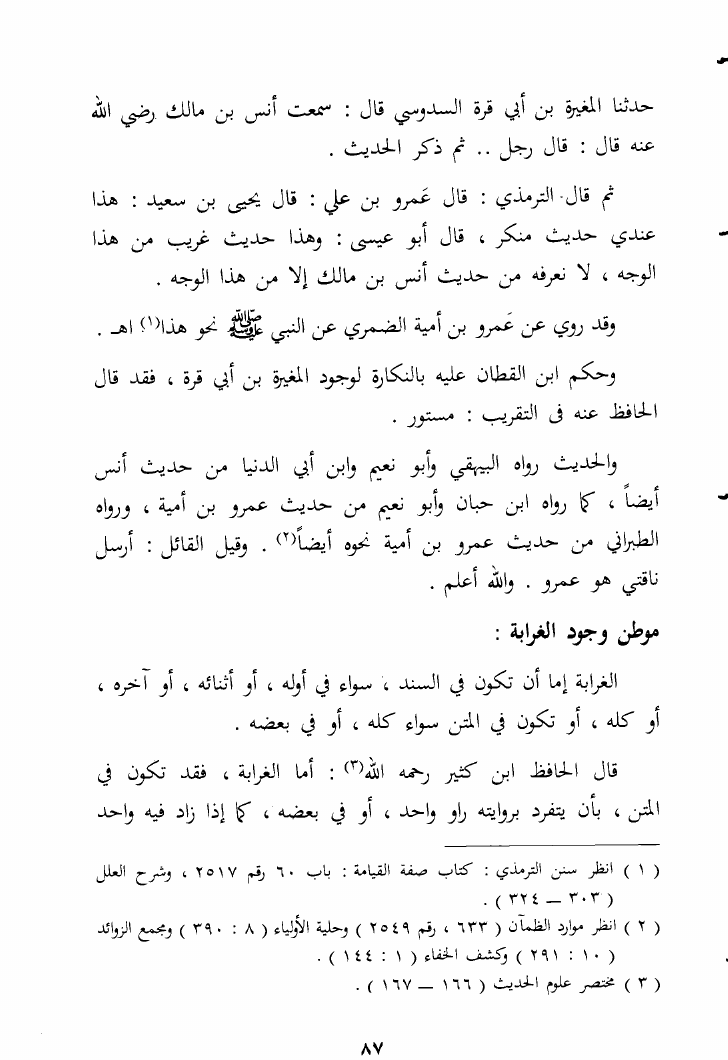 حدثنا المغيرة بن أبي قرة السدوسي قال : سمعت أنس بن مالك رضي الله
عنه قال : قال رجل .. ثم ذكر الحديث .
ثم قال الترمذي : قال عَمرو بن علي : قال يحيى بن سعيد : هذا
عندي حديث منكر ، قال أبو عيسى : وهذا حديث غريب من هذا
الوجه ، لا نعرفه من حديث أنس بن مالك إلا من هذا الوجه .
وقد روي عن عَمرو بن أمية الضمري عن النبي ﷺ نحو هذا(١) اهـ .
وحكم ابن القطان عليه بالنكارة لوجود المغيرة بن أبي قرة ، فقد قال
الحافظ عنه فى التقريب : مستور .
والحديث رواه البيهقي وأبو نعيم وابن أبي الدنيا من حديث أنس
أيضاً ، كما رواه ابن حبان وأبو نعيم من حديث عمرو بن أمية ، ورواه
الطبراني من حديث عمرو بن أمية نحوه أيضاً(٢) . وقيل القائل : أرسل
ناقتي هو عمرو . والله أعلم .
موطن وجود الغرابة :
الغرابة إما أن تكون في السند ، سواء في أوله ، أو أثنائه ، أو آخره ،
أو كله ، أو تكون في المتن سواء كله ، أو في بعضه .
قال الحافظ ابن كثير رحمه الله(٣) : أما الغرابة ، فقد تكون في
المتن ، بأن يتفرد بروايته راو واحد ، أو في بعضه ، كما إذا زاد فيه واحد
( ١ ) انظر سنن الترمذي : كتاب صفة القيامة : باب ٦٠ رقم ٢٥١٧ ، وشرح العلل
( ٣٠٣ — ٣٢٤ ) .
( ٢ ) انظر موارد الظمآن ( ٦٣٣ ، رقم ٢٥٤٩ ) وحلية الأولياء ( ٨ : ٣٩٠ ) ومجمع الزوائد
( ١٠ : ٢٩١ ) وكشف الخفاء ( ١ : ١٤٤ ) .
( ٣ ) مختصر علوم الحديث ( ١٦٦ — ١٦٧ ) .
٨٧